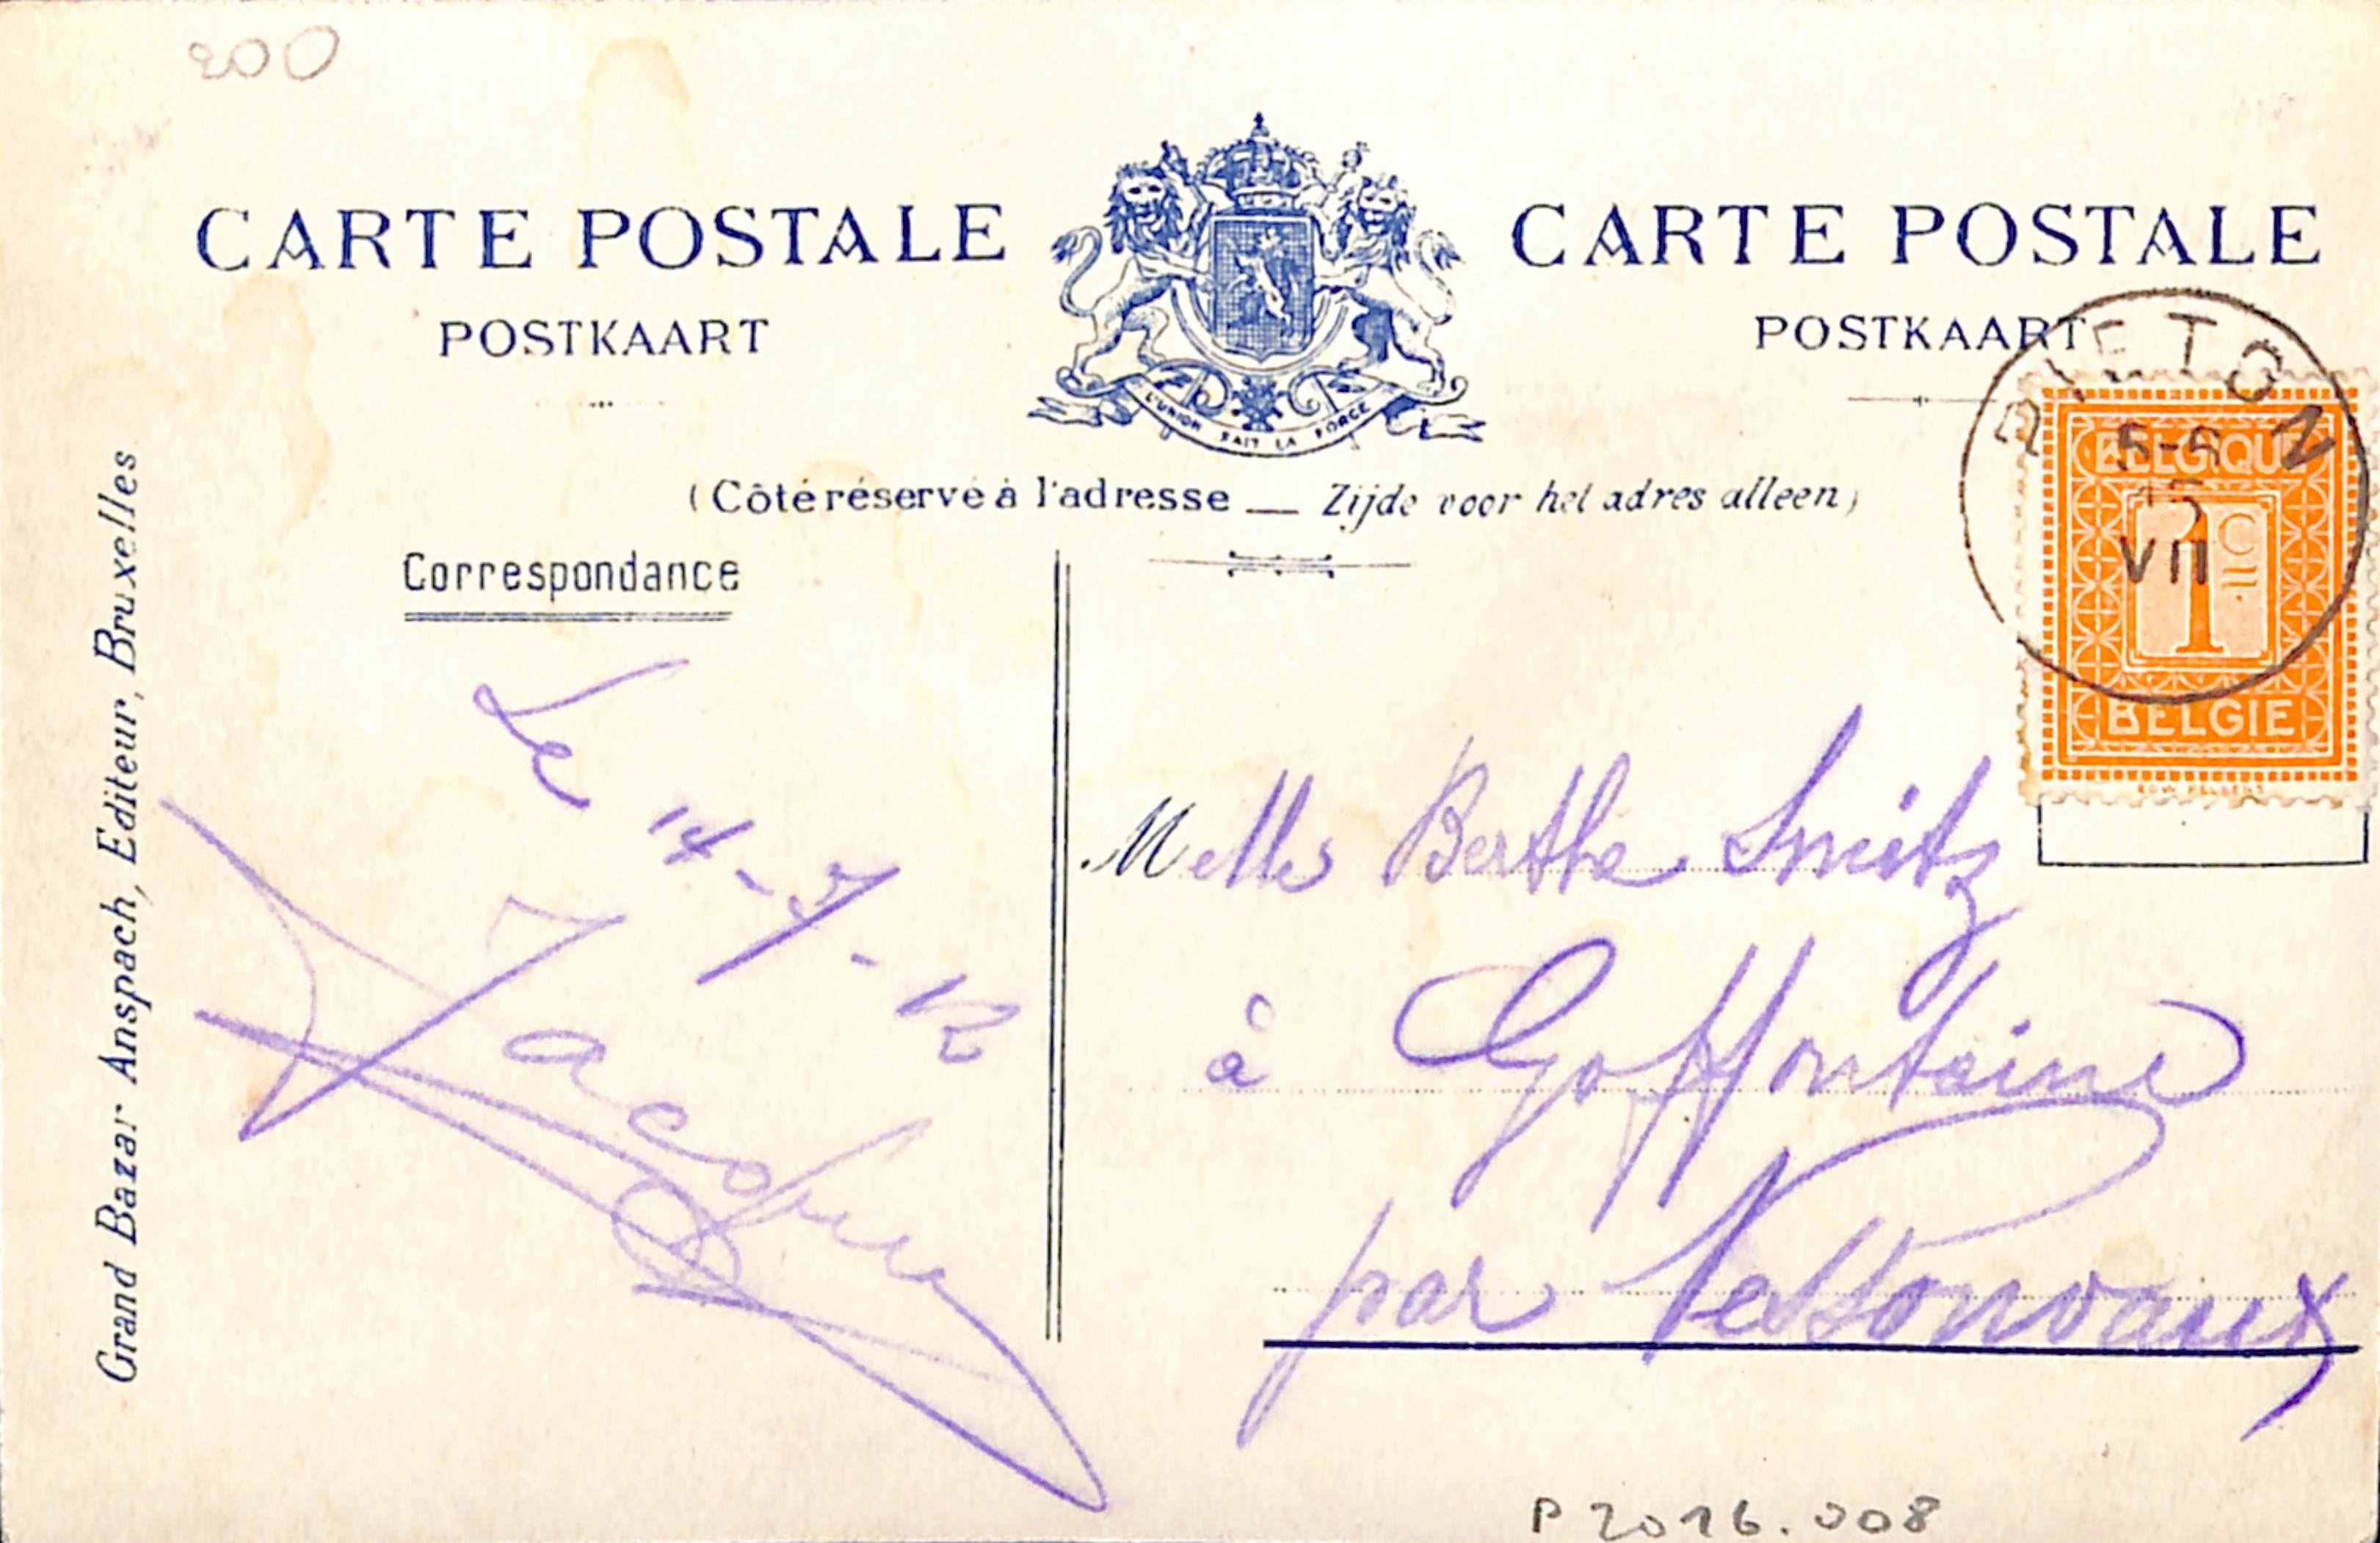 200
CARTE POSTALE
POSTKAART
L'UNION FAIT LA FORCE
CARTE POSTALE
POSTKAART
(Côté réservé à l'adresse — Zijde voor het adres alleen)
Correspondance
Grand Bazar Anspach, Editeur, Bruxelles
BELGIQUE
1 C
BELGIE
5-6
15
VII
Le 14-7-12
Melle Berthe Smitz
à Goffontaine
par Nessonvaux
P2016.008